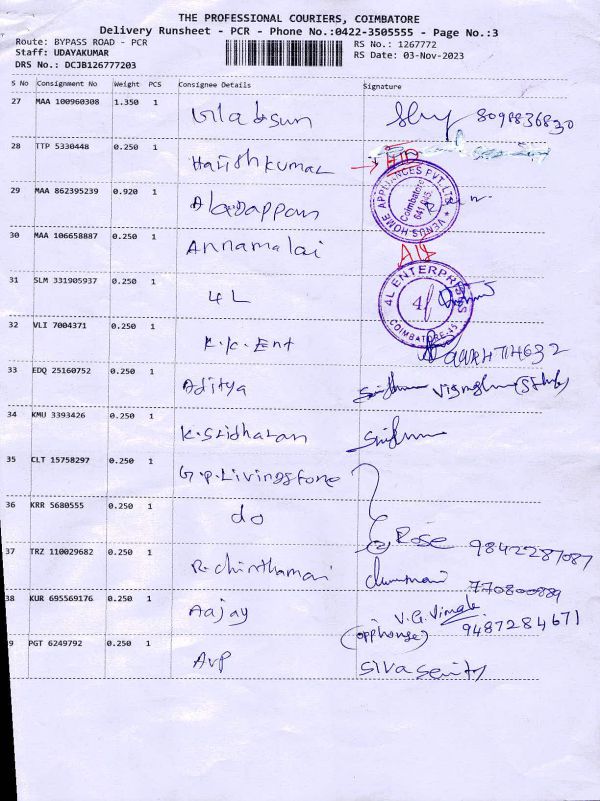 THE PROFESSIONAL COURIERS, COIMBATORE
Delivery Runsheet - PCR - Phone No.:0422-3505555 - Page No.:3
Route: BYPASS ROAD - PCR RS No.: 1267772
Staff: UDAYAKUMAR RS Date: 03-Nov-2023
DRS No.: DCJB126777203
S No Consignment No Weight PCS Consignee Details Signature
27 MAA 100960308 1.350 1 Gladsun 8098836830
28 TTP 5330448 0.250 1 Harishkumar
29 MAA 862395239 0.920 1 Alagappan
VENUS HOME APPLIANCES PVT.LTD. Coimbatore
30 MAA 106658887 0.250 1 Annamalai
31 SLM 331905937 0.250 1 4L
4L ENTERPRISES COIMBATORE-45
32 VLI 7004371 0.250 1 K.K. Ent
33 EDQ 25160752 0.250 1 Aditya
34 KMU 3393426 0.250 1 K.Sridharan
35 CLT 15758297 0.250 1 G.P.Livingstone
36 KRR 5680555 0.250 1 do Rose 9842287087
37 TRZ 110029682 0.250 1 R.Chinthamani 770800889
38 KUR 695569176 0.250 1 Aajay V.G.Vimala (opphouse) 9487284671
9 PGT 6249792 0.250 1 AVP Siva